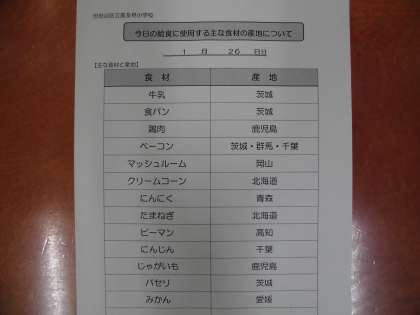 世田谷区立喜多見小学校
今日の給食に使用する主な食材の産地について
1 月 26 日分
【主な食材と産地】
食 材 産 地
牛乳 茨城
食パン 茨城
鶏肉 鹿児島
ベーコン 茨城・群馬・千葉
マッシュルーム 岡山
クリームコーン 北海道
にんにく 青森
たまねぎ 北海道
ピーマン 高知
にんじん 千葉
じゃがいも 鹿児島
パセリ 茨城
みかん 愛媛